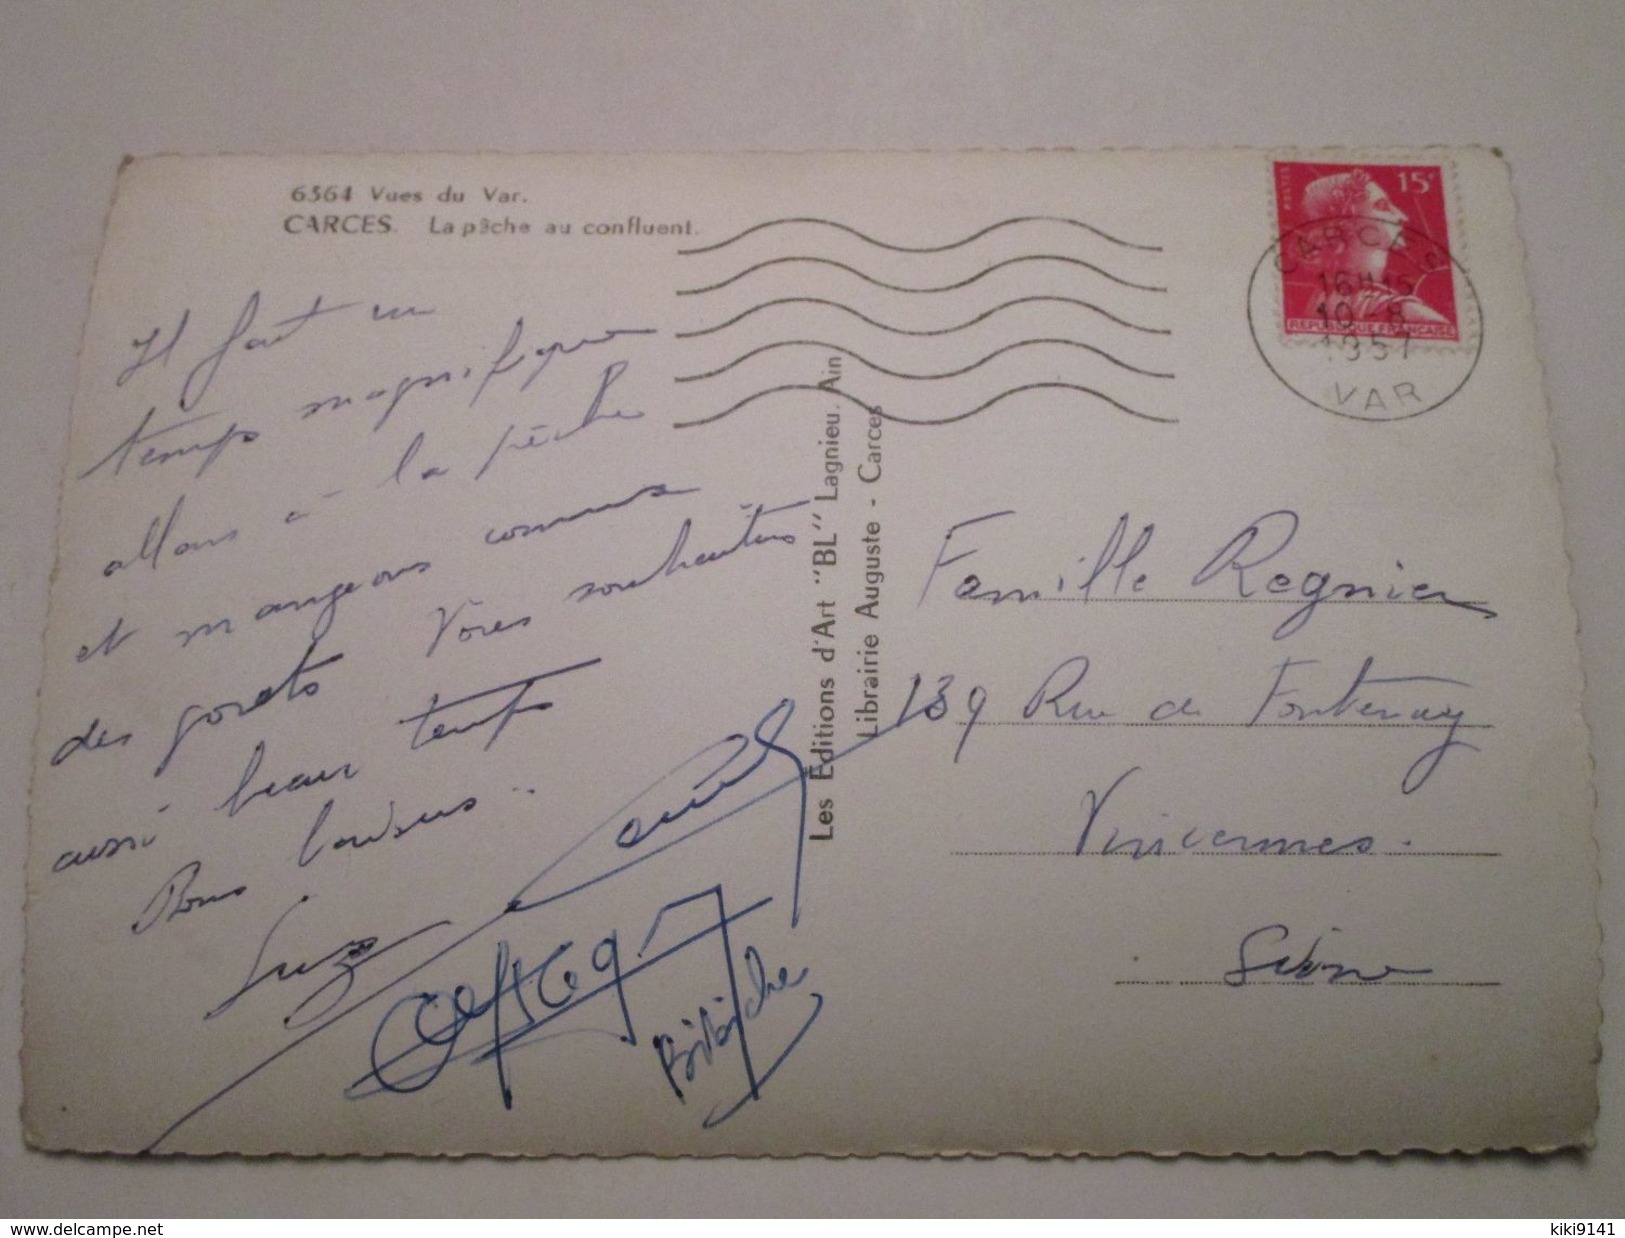 6564 Vues du Var.
CARCES. La pêche au confluent.
Il fait un
temps magnifique
allons à la pêche
et mangeons comme
des gorets Vous souhaitons
aussi beau temps
Bons baisers ..
Suzy
Bibiche
Les Editions d'Art "BL" Lagnieu. Ain
Librairie Auguste - Carces
15F
POSTES
REPUBLIQUE FRANÇAISE
CARCES
16H15
10-8
1957
VAR
Famille Regnier
139 Rue de Fontenay
Vincennes.
Seine
www.delcampe.net
kiki9141